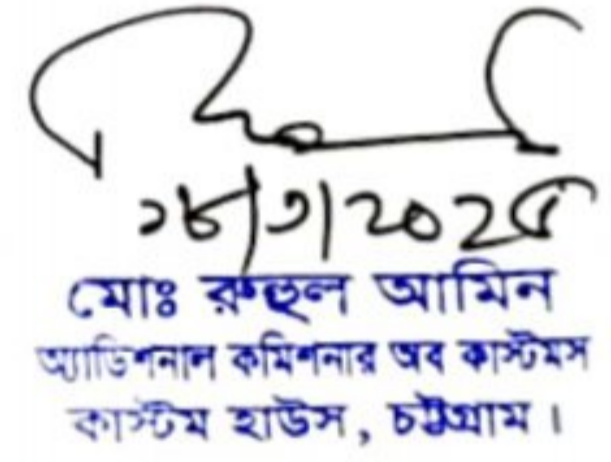 ১৮/৩/২০২৫
মোঃ রুহুল আমিন
অ্যাডিশনাল কমিশনার অব কাস্টমস
কাস্টম হাউস, চট্টগ্রাম।